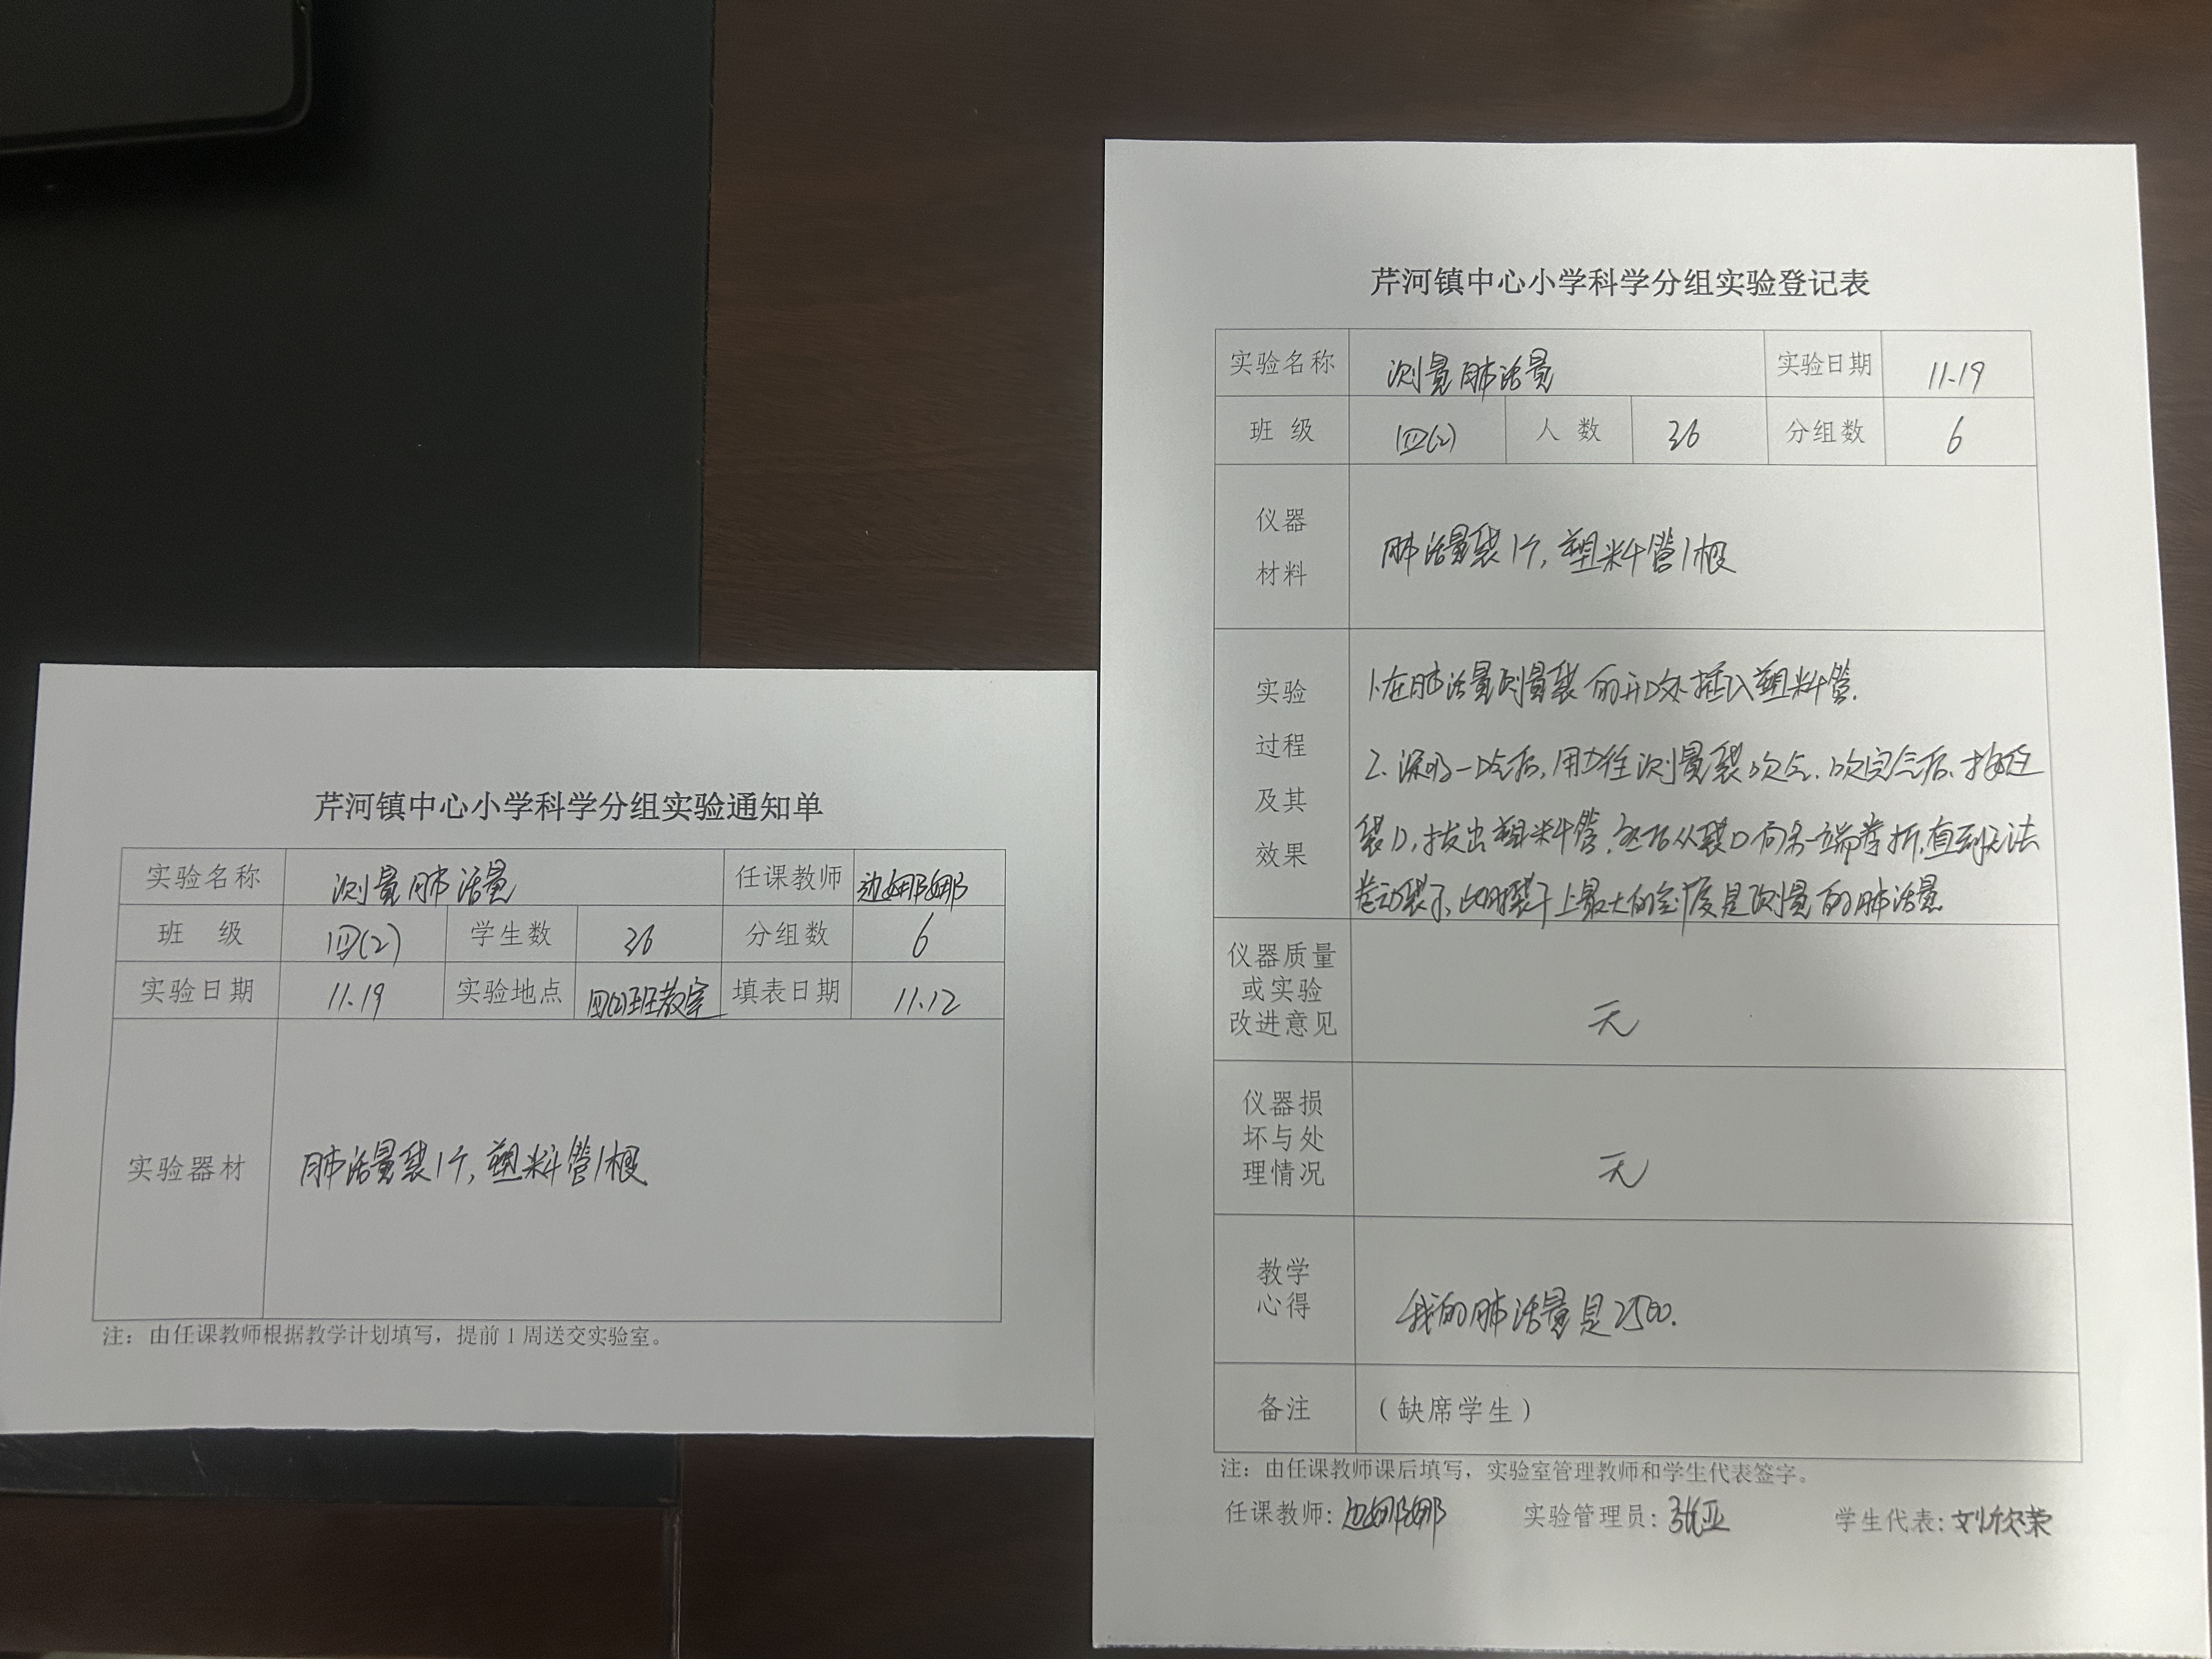 芹河镇中心小学科学分组实验通知单
实验名称 测量肺活量 任课教师 边娜娜
班 级 四(2) 学生数 36 分组数 6
实验日期 11.19 实验地点 四(2)班教室 填表日期 11.12
实验器材 肺活量袋1个,塑料管1根
注：由任课教师根据教学计划填写，提前1周送交实验室。
芹河镇中心小学科学分组实验登记表
实验名称 测量肺活量 实验日期 11.19
班 级 四(2) 人 数 36 分组数 6
仪器
材料
肺活量袋1个,塑料管1根
实验
过程
及其
效果
1.在肺活量测量袋的开口处插入塑料管.
2.深吸一口气后,用力往测量袋吹气.吹完气后,按住
袋口,拔出塑料管.然后从袋口向另一端卷折,直到无法
卷动袋子,此时袋子上最大的刻度是测量的肺活量
仪器质量
或实验
改进意见
无
仪器损
坏与处
理情况
无
教学
心得
我的肺活量是2500.
备注 （缺席学生）
注：由任课教师课后填写，实验室管理教师和学生代表签字。
任课教师：边娜娜 实验管理员：张亚 学生代表：刘欣荣